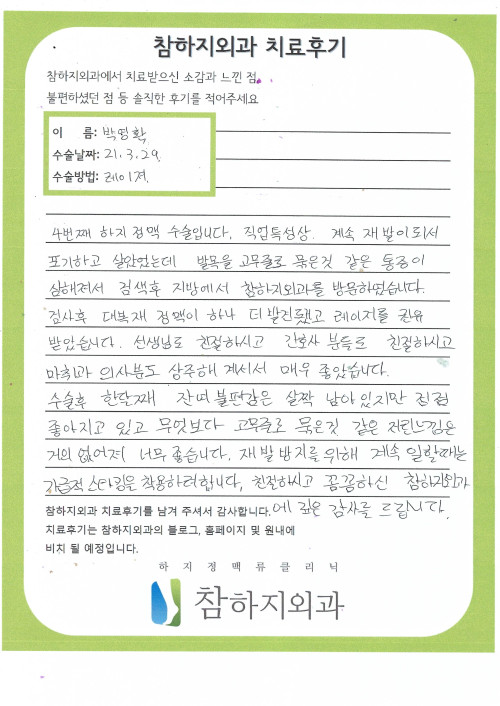 참하지외과 치료후기
참하지외과에서 치료받으신 소감과 느낀 점,
불편하셨던 점 등 솔직한 후기를 적어주세요
이 름: 박영확
수술날짜: 21.3.29.
수술방법: 레이져
4번째 하지정맥 수술입니다. 직업특성상. 계속 재발이되서
포기하고 살았었는데 발목을 고무줄로 묶은것 같은 통증이
심해져서 검색후 지방에서 참하지외과를 방문하였습니다.
검사후 대복재 정맥이 하나 더 발견됐고 레이저를 권유
받았습니다. 선생님도 친절하시고 간호사 분들도 친절하시고
마취과 의사분도 상주해 계셔서 매우 좋았습니다.
수술후 한달째 잔여 불편감은 살짝 남아있지만 점점
좋아지고 있고 무엇보다 고무줄로 묶은것 같은 저린느낌은
거의 없어져 너무 좋습니다. 재발방지를 위해 계속 일할때는
가급적 스타킹을 착용하려합니다, 친절하시고 꼼꼼하신 참하지외과
에 깊은 감사를 드립니다.
참하지외과 치료후기를 남겨 주셔서 감사합니다.
치료후기는 참하지외과의 블로그, 홈페이지 및 원내에
비치 될 예정입니다.
하지정맥류클리닉
참하지외과